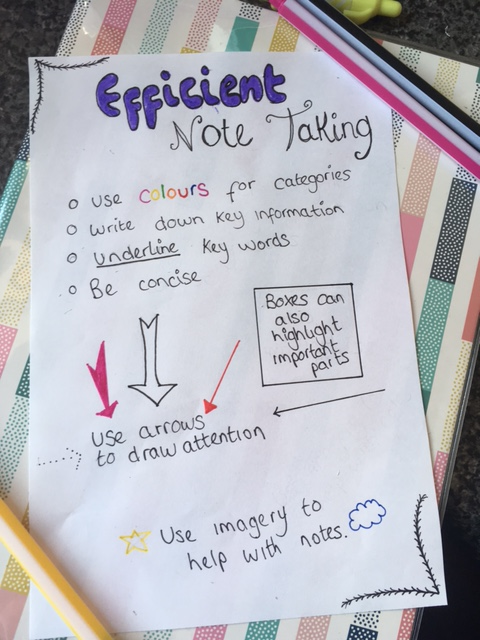 Efficient
Note Taking
o Use colours for categories
o Write down key information
o underline key words
o Be concise
Boxes can
also
highlight
important
parts
Use arrows
to draw attention
Use imagery to
help with notes.